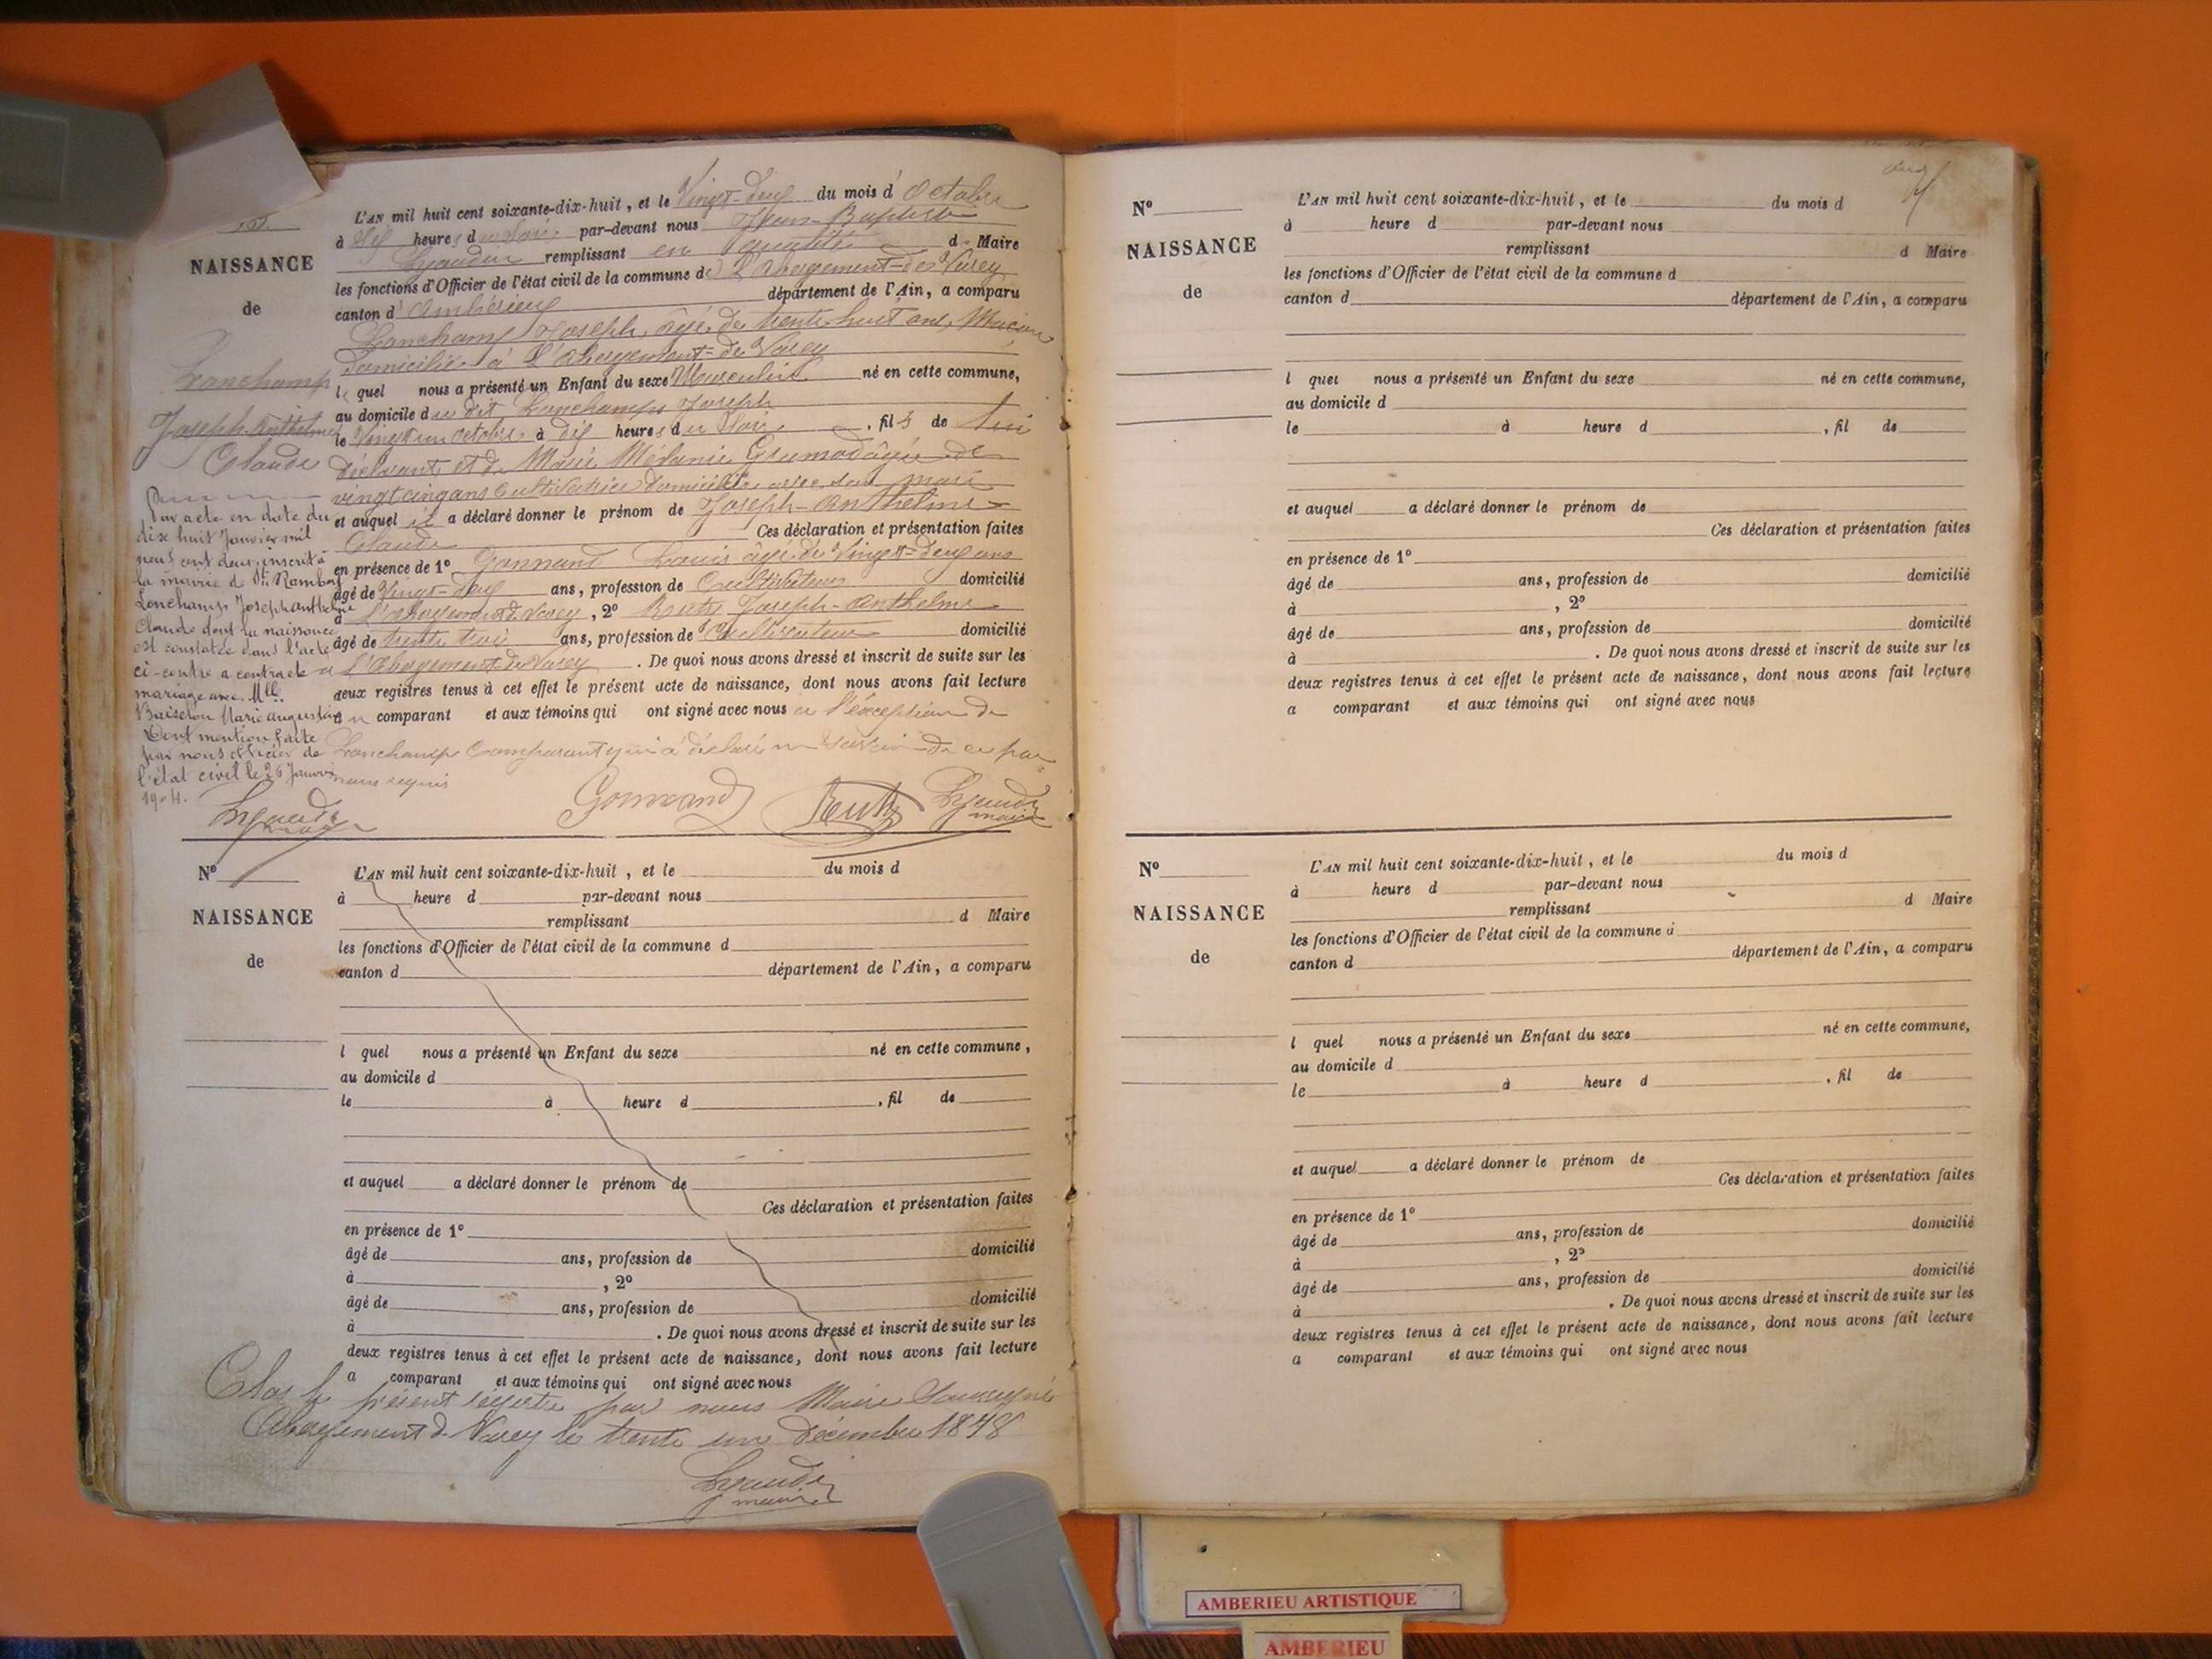 NAISSANCE
de
Lonchamp
Joseph Anthelme
Claude
Par acte en date du
dix huit Janvier mil
neuf cent deux, inscrit à
la mairie de St Rambert
Lonchamp Joseph Anthelme
Claude dont la naissance
est constatée dans l'acte
ci-contre a contracté
mariage avec Mlle
Marie Augustine
Dont mention faite
par nous officier de
l'état civil le 26 Janvier
1904.
L'AN mil huit cent soixante-dix-huit, et le Vingt-deux du mois d'Octobre
à heures du Soir par-devant nous Jean-Baptiste
remplissant en qualité d Maire
les fonctions d'Officier de l'état civil de la commune de L'Abergement-de Varey
canton d'Ambérieux département de l'Ain, a comparu
Lonchamp Joseph, âgé de trente huit ans, Maçon
domicilié à L'Abergement-de Varey
lequel nous a présenté un Enfant du sexe Masculin né en cette commune,
au domicile du dit Lonchamp Joseph
le Vingt un octobre à dix heures du Soir, fils de lui
déclarant et de Marie Mélanie âgée de
vingt cinq ans Cultivatrice domiciliée avec son mari
et auquel il a déclaré donner le prénom de Joseph-Anthelme
Claude Ces déclaration et présentation faites
en présence de 1° Gonnand Louis âgé de Vingt-deux ans
âgé de Vingt-deux ans, profession de Cultivateur domicilié
à L'Abergement de Varey, 2° Joseph-Anthelme
âgé de trente trois ans, profession de Cultivateur domicilié
à L'Abergement de Varey. De quoi nous avons dressé et inscrit de suite sur les
deux registres tenus à cet effet le présent acte de naissance, dont nous avons fait lecture
au comparant et aux témoins qui ont signé avec nous à l'exception de
Lonchamp Comparant qui a déclaré ne savoir de ce par
nous requis
Gonnand
maire
N°
NAISSANCE
de
L'AN mil huit cent soixante-dix-huit, et le du mois d
à heure d par-devant nous
remplissant d Maire
les fonctions d'Officier de l'état civil de la commune d
canton d département de l'Ain, a comparu
l quel nous a présenté un Enfant du sexe né en cette commune,
au domicile d
le à heure d , fil de
et auquel a déclaré donner le prénom de
Ces déclaration et présentation faites
en présence de 1°
âgé de ans, profession de domicilié
à , 2°
âgé de ans, profession de domicilié
à . De quoi nous avons dressé et inscrit de suite sur les
deux registres tenus à cet effet le présent acte de naissance, dont nous avons fait lecture
a comparant et aux témoins qui ont signé avec nous
Clos le présent registre par nous Maire soussigné
Abergement de Varey le trente un décembre 1878
maire
N°
NAISSANCE
de
L'AN mil huit cent soixante-dix-huit, et le du mois d
à heure d par-devant nous
remplissant d Maire
les fonctions d'Officier de l'état civil de la commune d
canton d département de l'Ain, a comparu
l quel nous a présenté un Enfant du sexe né en cette commune,
au domicile d
le à heure d , fil de
et auquel a déclaré donner le prénom de
Ces déclaration et présentation faites
en présence de 1°
âgé de ans, profession de domicilié
à , 2°
âgé de ans, profession de domicilié
à . De quoi nous avons dressé et inscrit de suite sur les
deux registres tenus à cet effet le présent acte de naissance, dont nous avons fait lecture
a comparant et aux témoins qui ont signé avec nous
N°
NAISSANCE
de
L'AN mil huit cent soixante-dix-huit, et le du mois d
à heure d par-devant nous
remplissant d Maire
les fonctions d'Officier de l'état civil de la commune d
canton d département de l'Ain, a comparu
l quel nous a présenté un Enfant du sexe né en cette commune,
au domicile d
le à heure d , fil de
et auquel a déclaré donner le prénom de
Ces déclaration et présentation faites
en présence de 1°
âgé de ans, profession de domicilié
à , 2°
âgé de ans, profession de domicilié
à . De quoi nous avons dressé et inscrit de suite sur les
deux registres tenus à cet effet le présent acte de naissance, dont nous avons fait lecture
a comparant et aux témoins qui ont signé avec nous
AMBERIEU ARTISTIQUE
AMBERIEU